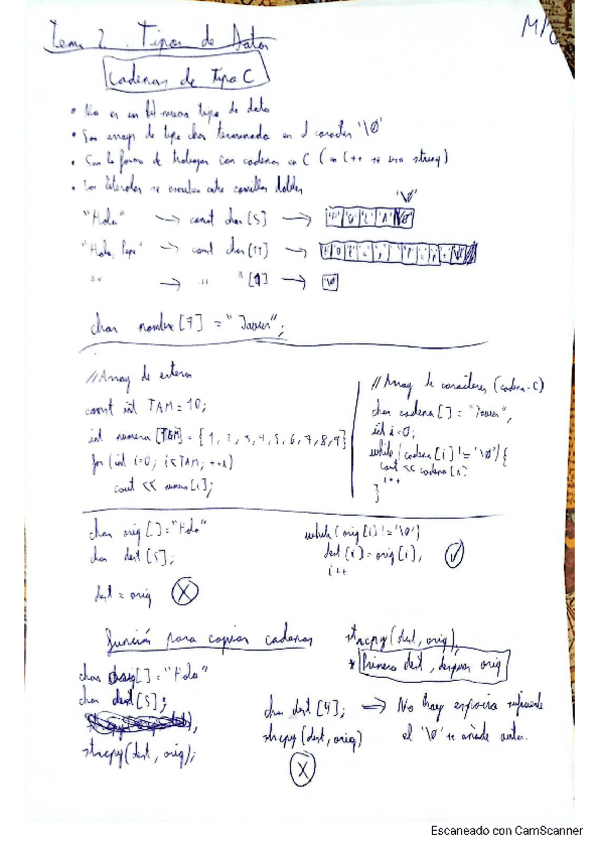 Tema 2. Tipos de Datos
Cadenas de tipo C
• No es un tipo de dato
• Son arrays de tipo char terminado en el caracter '\0'
• Son la forma de trabajar con cadenas en C (en C++ string)
• Los literales se escriben entre comillas dobles
'\0'
"Hola" → const char [5] →
"Hola, Pepe" → const char [11] →
"" → " " [1] → \0
char nombre [7] = "Javier";
//Array de enteros
const int TAM = 10;
int numero [TAM] = {1, 2, 3, 4, 5, 6, 7, 8, 9}
for (int i=0; i<TAM; ++i)
cout << numero[i];
//Array de caracteres (cadena-C)
char cadena [] = "Javier";
int i=0;
while (cadena [i] != '\0') {
cout << cadena [i]
i++
}
char orig [] = "Hola"
char dest [5];
dest = orig
while (orig [i] != '\0')
dest [i] = orig [i];
i++
Función para copiar cadenas
strcpy (dest, orig);
* Primero dest, después orig
char orig [] = "Hola"
char dest [5];
strcpy (dest, orig);
char dest [4]; → No hay espacio suficiente
strcpy (dest, orig) el '\0' se añade
Escaneado con CamScanner